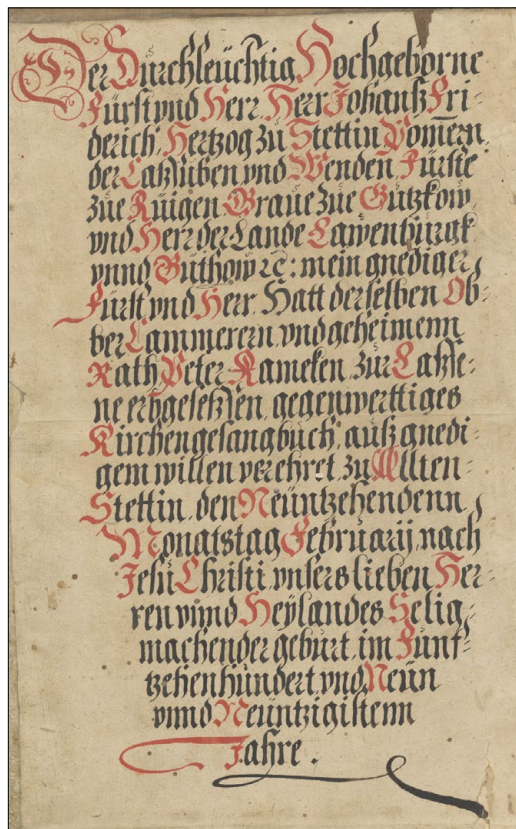 Der Durchleuchtig Hochgeborne
Fürst vnd Herr, Herr Johanß Fri-
derich, Hertzog zu Stettin Pomern,
der Caßuben vnd Wenden, Fürste
zue Rüigen Graue zue Gützkow,
vnd Herr der Lande Lawenburgk
vnnd Büthow ꝛc: mein gnediger
Fürst vnd Herr, Hatt derselben Ob-
ber Cammerern vnd geheimenn
Rath Peter Kameken zur Caßie-
ne erbgeseßsen, gegenwerttiges
Kirchengesangbuch, auß gnedi-
gem willen verehret, zu Allten-
Stettin, den Neuntzehendenn
Monatstag Februarij, nach
Jesu Christi vnsers lieben Her-
ren vnnd Heylandes Selig
machender geburt, im Funf-
tzehenhundert vnd Neun
vnnd Neuntzigistenn
Jahre.